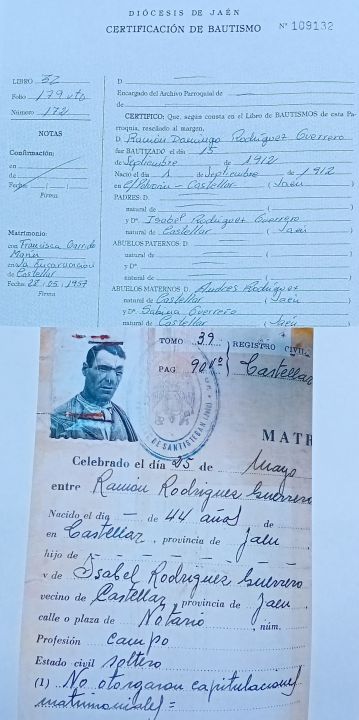 DIÓCESIS DE JAÉN
CERTIFICACIÓN DE BAUTISMO
Nº 109132
LIBRO 32
Folio 179 vto
Número 172
NOTAS
Confirmación:
en
de
Fecha
Firma
Matrimonio:
con Francisca Garrido
en la Encarnación
de Castellar
Fecha: 28.05.1957
Firma
D
Encargado del Archivo Parroquial de
de
CERTIFICO: Que, según consta en el Libro de BAUTISMOS de esta Pa-
rroquia, reseñado al margen,
D. Ramón Domingo Rodríguez Guerrero
fue BAUTIZADO el día 15
de Septiembre de 1912
Nació el día 1 de Septiembre de 1912
en C/ - Castellar (Jaén)
PADRES: D.
natural de ( )
y Dª Isabel Rodríguez Guerrero
natural de Castellar (Jaén)
ABUELOS PATERNOS: D.
natural de ( )
y Dª
natural de ( )
ABUELOS MATERNOS: D. Andrés Rodríguez
natural de Castellar (Jaén)
y Dª Sabina Guerrero
natural de Castellar (Jaén
TOMO 39
PAG 90 vº
REGISTRO CIVIL
Castellar
DE SANTISTEBAN
MATR
Celebrado el día 25 de Mayo
entre Ramón Rodriguez Guerrero
Nacido el día — de 44 años de
en Castellar, provincia de Jaen
hijo de
y de Isabel Rodriguez Guerrero
vecino de Castellar provincia de Jaen
calle o plaza de Notario núm.
Profesión campo
Estado civil soltero
(1) No otorgaron capitulaciones
matrimoniales =